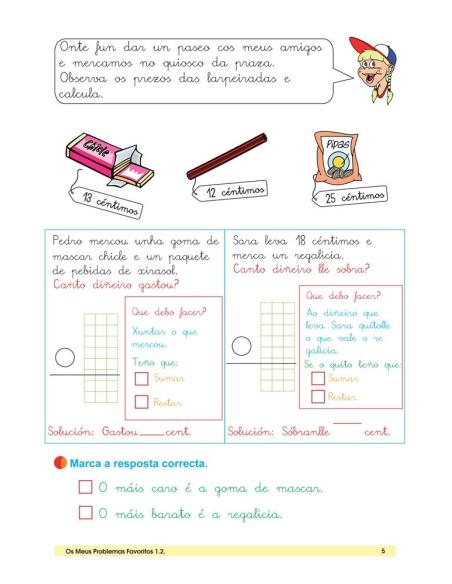 Onte fun dar un paseo cos meus amigos
e mercamos no quiosco da praza.
Observa os prezos das larpeiradas e
calcula.
Chicle
Pipas
13 céntimos
12 céntimos
25 céntimos
Pedro mercou unha goma de
mascar chicle e un paquete
de pebidas de xirasol.
Canto diñeiro gastou?
Que debo facer?
Xuntar o que
mercou.
Teño que:
Sumar
Restar
Solución: Gastou ____ cent.
Sara leva 18 céntimos e
merca un regalicia.
Canto diñeiro lle sobra?
Que debo facer?
Ao diñeiro que
leva Sara quítolle
o que vale o re
galicia.
Se o quito teño que:
Sumar
Restar
Solución: Sóbranlle ____ cent.
Marca a resposta correcta.
O máis caro é a goma de mascar.
O máis barato é a regalicia.
Os Meus Problemas Favoritos 1.2.
5